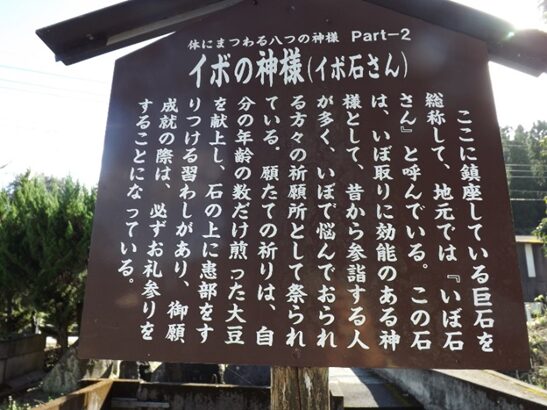 体にまつわる八つの神様 Part-2
イボの神様(イボ石さん)
ここに鎮座している巨石を
総称して、地元では『いぼ石
さん』と呼んでいる。この石
は、いぼ取りに効能のある神
様として、昔から参詣する人
が多く、いぼで悩んでおられ
る方々の祈願所として祭られ
ている。願たての祈りは、自
分の年齢の数だけ煎った大豆
を献上し、石の上に患部をす
りつける習わしがあり、御願
成就の際は、必ずお礼参りを
することになっている。